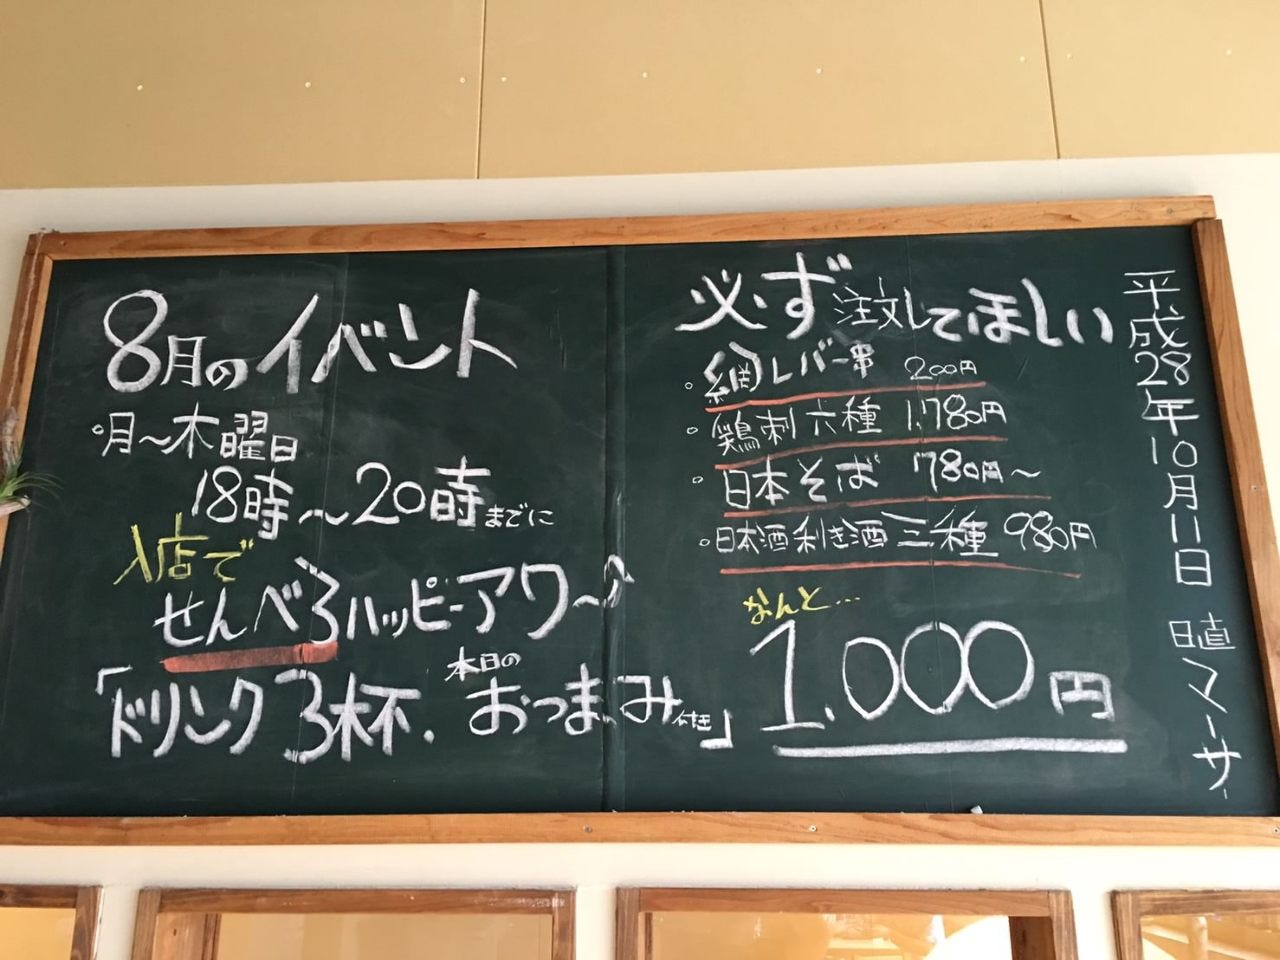 8月のイベント
・月〜木曜日
18時〜20時までに
入店で
せんべろハッピーアワ〜♪
「ドリンク3杯.本日のおつまみ付き」
必ず注文してほしい
・網レバー串 200円
・鶏刺六種 1,780円
・日本そば 780円〜
・日本酒利き酒三種 980円
なんと...
1,000円
平成28年10月11日
日直 マーサー